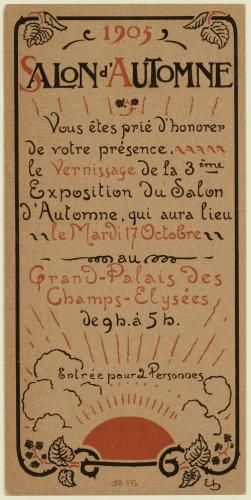 1905
SALON d'AUTOMNE
Vous êtes prié d'honorer
de votre présence,
le Vernissage de la 3ème
Exposition du Salon
d'Automne, qui aura lieu
le Mardi 17 Octobre
au
Grand-Palais des
Champs-Elysées
de 9h. à 5h.
Entrée pour 2 Personnes